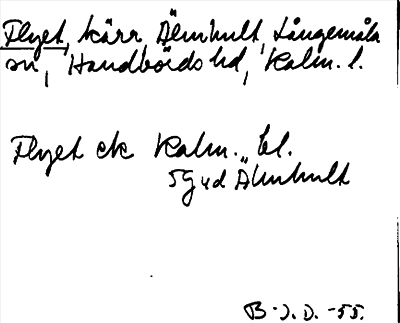 Flyet, kärr Älmhult, Långemåla
sn, Handbörds hd, Kalm. l.
Flyet ek Kalm. bl.
5g vd Älmhult
B-J. D. -55.